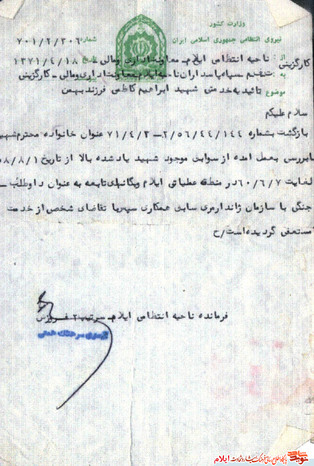 وزارت کشور
نیروی انتظامی جمهوری اسلامی ایران
شماره ۷۰۱/۲/۳۰۶
از ناحیه انتظامی ایلام ـ معاونت اداری و مالی ـ کارگزینی
تاریخ ۱۳۷۱/۴/۱۸
به سپاه پاسداران ناحیه ایلام ـ معاونت اداری و مالی ـ کارگزینی
موضوع تائیدیه خدمتی شهید ابراهیم کاظمی فرزند بهمن
سلام علیکم
بازگشت بشماره ۲/۵۶/۴۴/۱۴۴ ـ ۷۱/۴/۳ عنوان خانواده محترم شهید
با بررسی بعمل آمده از سوابق موجود شهید یاد شده بالا از تاریخ ۵۸/۸/۱
لغایت ۶۰/۶/۷ در منطقه عملیاتی ایلام و یگانهای تابعه به عنوان داوطلب
جنگی با سازمان ژاندارمری سابق همکاری سپس با تقاضای شخصی از خدمت
مستعفی گردیده است/ح
فرمانده ناحیه انتظامی ایلام ـ سرتیپ ۲
ایلام